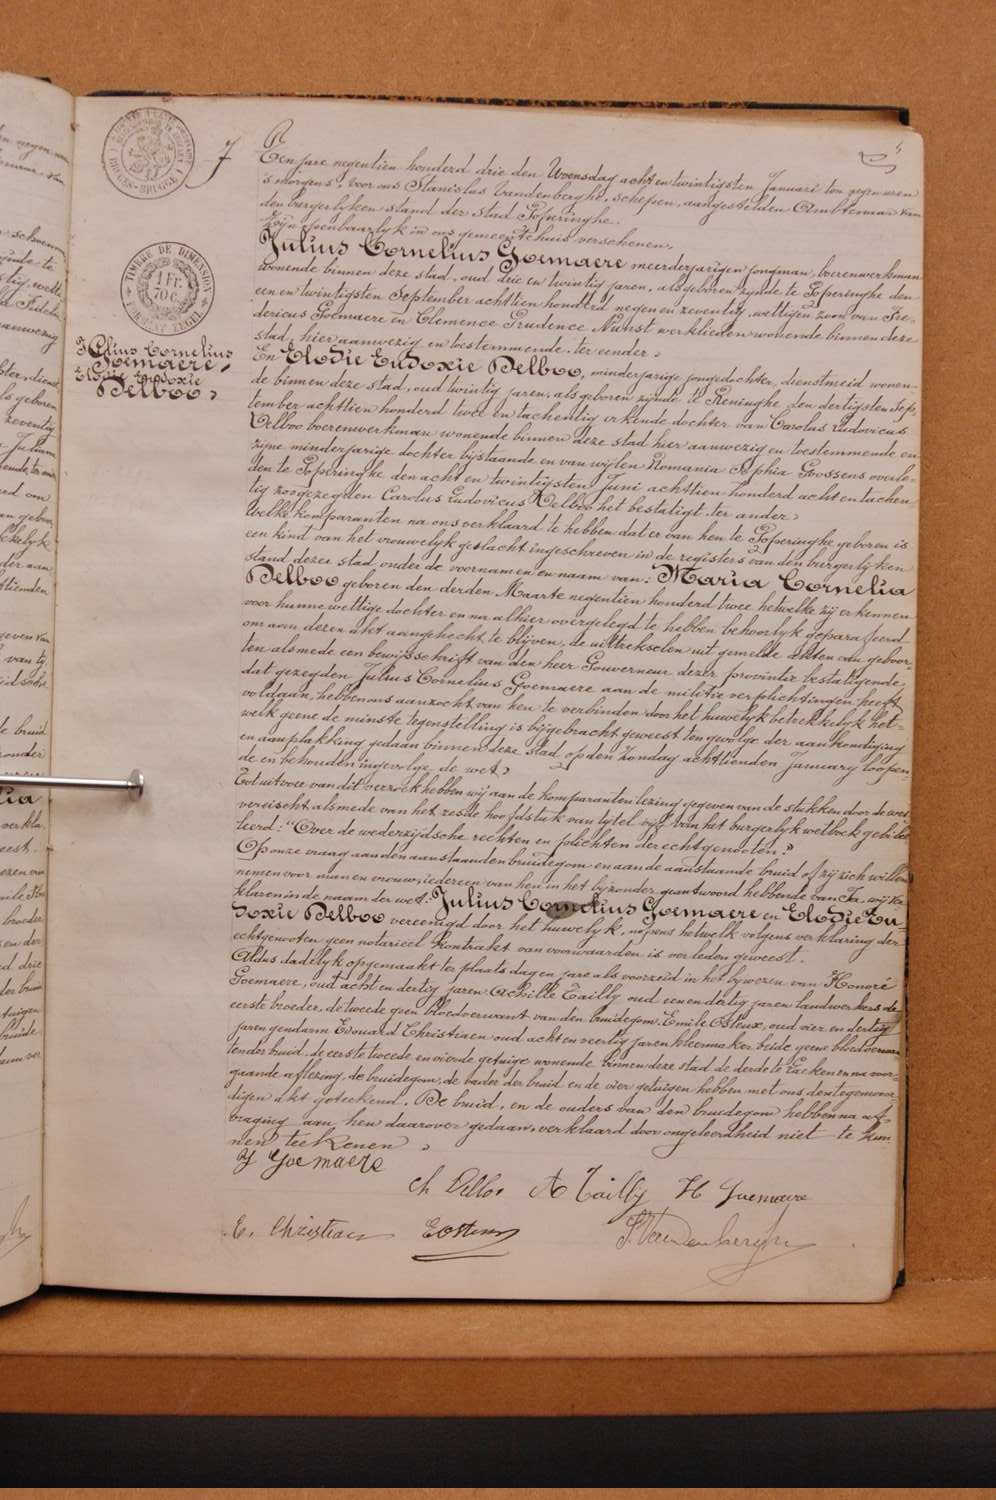 7
TIMBRE DE DIMENSION
1 FR.
70 C.
FORMAAT ZEGEL
BRUGES - BRUGGE
Julius Cornelius
Goemaere,
Elodie Eudoxie
Delboo,
Ten jare negentien honderd drie den Woensdag acht en twintigsten Januari ten negen uren
's morgens, voor ons Stanislas Vandenberghe, schepen, aangestelden Ambtenaar van
den burgerlyken stand der stad Poperinghe.
Zyn openbaarlyk in ons gemeentehuis verschenen,
Julius Cornelius Goemaere meerderjarigen jongman, boerenwerkman
wonende binnen deze stad, oud drie en twintig jaren, als geboren zynde te Poperinghe den
een en twintigsten September achttien honderd negen en zeventig, wettigen zoon van Fre-
dericus Goemaere en Clemence Prudence Nunst werklieden wonende binnen deze
stad, hier aanwezig en toestemmende, ter eender,
En Elodie Eudoxie Delboo, minderjarige jongedochter, dienstmeid wonen-
de binnen deze stad, oud twintig jaren, als geboren zynde te Reninghe den dertigsten Sep-
tember achttien honderd twee en tachentig erkende dochter van Carolus Ludovicus
Delboo boerenwerkman wonende binnen deze stad hier aanwezig en toestemmende en
zyne minderjarige dochter bijstaande en van wijlen Romania Sophia Goossens overle-
den te Poperinghe den acht en twintigsten Juni achttien honderd acht en tachen-
tig zoo gezegden Carolus Ludovicus Delboo het bestatigt, ter ander,
Welke komparanten na ons verklaard te hebben dat er van hen te Poperinghe geboren is
een kind van het vrouwelyk geslacht ingeschreven in de registers van den burgerlyken
stand dezer stad onder de voornamen en naam van: Maria Cornelia
Delboo geboren den derden Maarte negentien honderd twee hetwelke zij erkennen
voor hunne wettige dochter en na alhier overgelegd te hebben behoorlyk geparafeerd
om aan dezen akt aangehecht te blijven, de uittrekselen uit gemelde akten van geboor-
ten alsmede een bewijsschrift van den heer Gouverneur dezer provintie bestatigende
dat gezegden Julius Cornelius Goemaere aan de militie verplichtingen heeft
voldaan, hebben ons aanzocht van hen te verbinden door het huwelyk betrekkelyk het-
welk geene de minste tegenstelling is bijgebracht geweest ten gevolge der aankondiging
en aanplakking gedaan binnen deze stad op den Zondag achttienden January loopen-
de en behouden ingevolge de wet,
Tot uitvoer van dit verzoek hebben wij aan de komparanten lezing gegeven van de stukken door de wet
vereischt alsmede van het zesde hoofdstuk van tytel vijf van het burgerlyk wetboek gebitel-
teerd: "Over de wederzijdsche rechten en plichten der echtgenoten."
Op onze vraag aan den aanstaanden bruidegom en aan de aanstaande bruid of zij zich willen
nemen voor man en vrouw, iedereen van hen in het bijzonder geantwoord hebbende van Ja, wij ver-
klaren in de naam der wet: Julius Cornelius Goemaere en Elodie Eu-
doxie Delboo vereenigd door het huwelyk, nopens hetwelk volgens verklaring der
echtgenoten geen notarieel kontrakt van voorwaarden is verleden geweest.
Aldus dadelyk opgemaakt ter plaats dag en jare als voorzeid in het bywezen van Honoré
Goemaere, oud acht en dertig jaren Achille Tailly oud een en dertig jaren landwerkers de
eerste broeder, de tweede geen bloedverwant van den bruidegom, Emile Osteux, oud vier en dertig
jaren gendarm Edouard Christiaen oud acht en veertig jaren kleermaker beide geene bloedverwan-
ten der bruid, de eerste tweede en vierde getuige wonende binnen deze stad de derde te Eecken en na voor-
gaande aflezing, de bruidegom, de vader der bruid en de vier getuigen hebben met ons dentegenwoor-
digen akt geteekend. De bruid, en de ouders van den bruidegom hebben na af-
vraging aan hen daarover gedaan, verklaard door ongeleerdheid niet te kun-
nen teekenen,
J Goemaere
Ch Delboo A Tailly H Goemaere
E. Christiaen E Osteux S. Vandenberghe